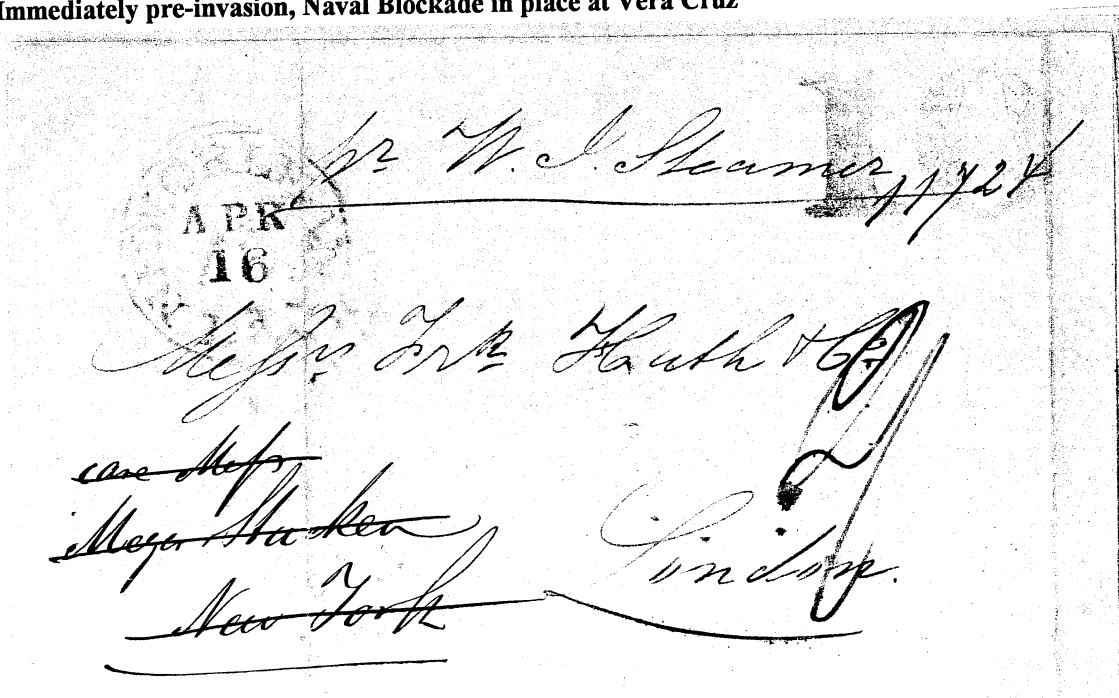 Immediately pre-invasion, Naval Blockade in place at Vera Cruz
pr W. I. Steamer
APR
16
Messrs. Frk Huth & Co
care Messrs
Meyer Stucken
New York
London.